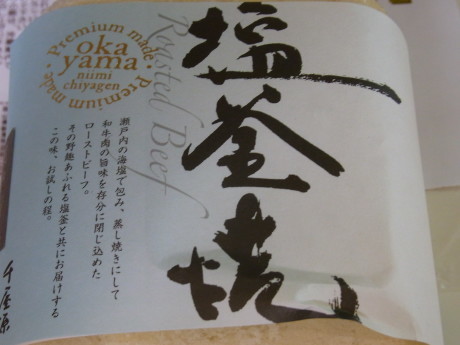 Premium made・Premium made・
oka
yama
niimi
chiyagen
Roasted Beef
塩釜焼
瀬戸内の海塩で包み、蒸し焼きにして
和牛肉の旨味を存分に閉じ込めた
ローストビーフ。
その野趣あふれる塩釜と共にお届けする
この味、お試しの程。
千屋源